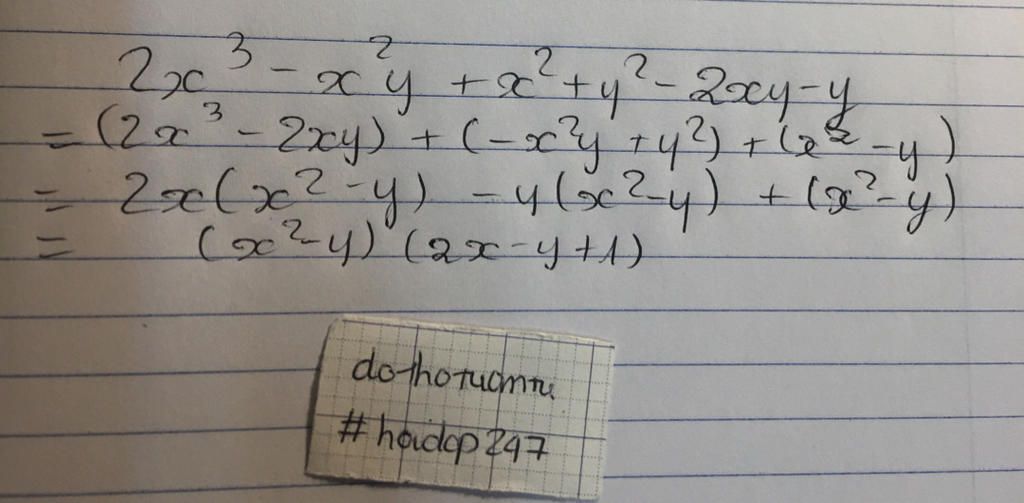 2x³ - x²y + x² + y² - 2xy - y
= (2x³ - 2xy) + (-x²y + y²) + (x² - y)
= 2x(x² - y) - y(x² - y) + (x² - y)
= (x² - y) (2x - y + 1)
#hoidap247